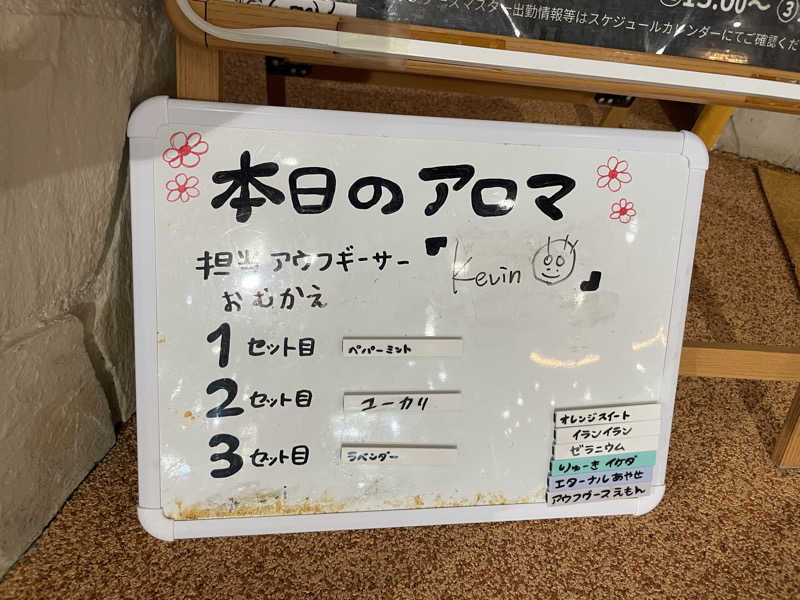 15:00~ ③
ースマスター出勤情報等はスケジュールカレンダーにてご確認くだ
本日のアロマ
担当アウフギーサー
『Kevin』
おむかえ
1セット目 ペパーミント
2セット目 ユーカリ
3セット目 ラベンダー
オレンジスイート
イランイラン
ゼラニウム
りゅーき イケダ
エターナル あやせ
アウフグース えもん